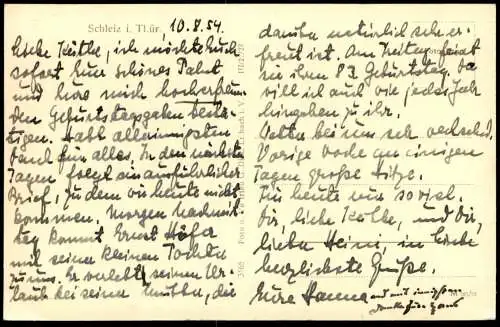 Schleiz i. Thür.
10.8.54.
Liebe Käthe, ich möchte Euch
sofort Euer schönes Paket
und Eure mich hocherfreuen
den Geburtstagsgaben bestä-
tigen. Habt allerinnigsten
Dank für alles. In den nächsten
Tagen folgt ein ausführlicher
Brief, zu dem wir heute nicht
kommen. Morgen Nachmit-
tag kommt Ernst
mit seiner kleinen Tochter
zu uns. Er verlebt seinen Ur-
laub bei seiner Mutter, die
darüber natürlich sehr er-
freut ist. Am Freitag feiert
sie ihren 83. Geburtstag. Da
will ich auch wie jedes Jahr
hingehen zu ihr.
Wetter bei uns sehr wechselnd.
Vorige Woche an einigen
Tagen große Hitze.
Für heute nur so viel.
Dir, liebe Käthe, und Dir,
lieber Heini, in Liebe
herzlichste Grüße.
Eure Hanna